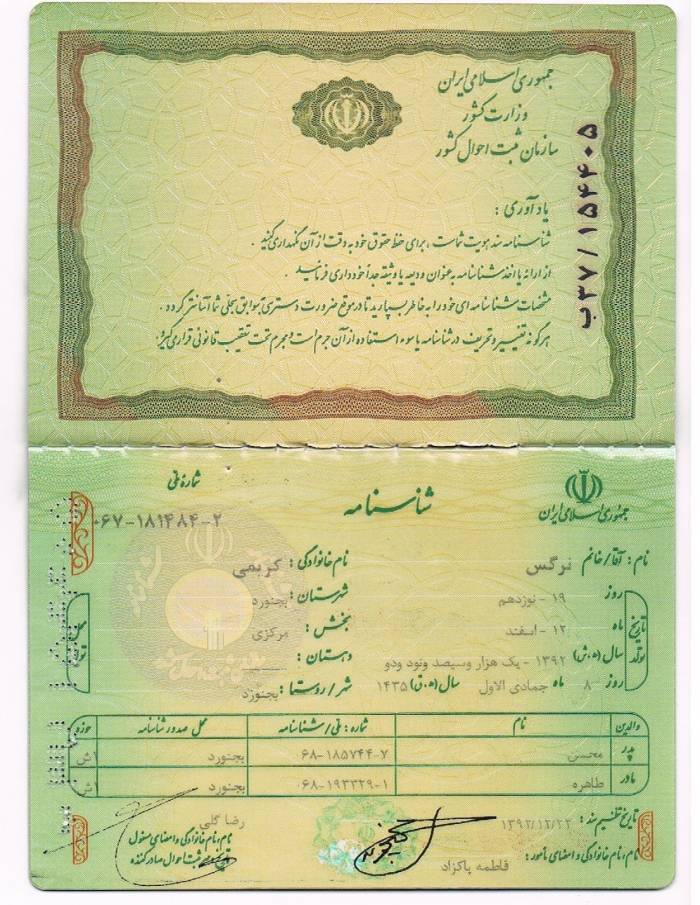 جمهوری اسلامی ایران
وزارت کشور
سازمان ثبت احوال کشور
ب۳۷/۱۵۴۴۰۵
یادآوری :
شناسنامه سند هویت شماست ، برای حفظ حقوق خود به دقت از آن نگهداری کنید .
از ارائه یا اخذ شناسنامه به عنوان ودیعه یا وثیقه جداً خودداری فرمائید .
مشخصات شناسنامه ای خود را به خاطر بسپارید تا در موقع ضرورت دسترسی به سوابق سجلی شما آسانتر گردد .
هرگونه تغییر و تحریف در شناسنامه یا سوء استفاده از آن جرم است و مجرم تحت تعقیب قانونی قرار می گیرد .
جمهوری اسلامی ایران
شناسنامه
شماره ملی
۰۶۷-۱۸۱۴۸۴-۲
نام : آقا/خانم نرگس نام خانوادگی : کریمی
تاریخ تولد
روز ۱۹ - نوزدهم
ماه ۱۲ - اسفند
سال (ه.ش) ۱۳۹۲ - یک هزار وسیصد ونود ودو
روز ۸ ماه جمادی الاول سال (ه.ق) ۱۴۳۵
محل تولد
شهرستان : بجنورد
بخش : مرکزی
دهستان :
شهر/روستا : بجنورد
والدین نام شماره : ملی/شناسنامه محل صدور شناسنامه حوزه
پدر محسن ۰۶۸-۱۸۵۷۴۴-۷ بجنورد ۱ش
مادر طاهره ۰۶۸-۱۹۳۳۲۹-۱ بجنورد ۱ش
تاریخ تنظیم سند : ۱۳۹۲/۱۲/۲۲
نام، نام خانوادگی و امضای مأمور : فاطمه پاکزاد
رضا گلی
نام، نام خانوادگی و امضای مسئول
ثبت احوال صادرکننده